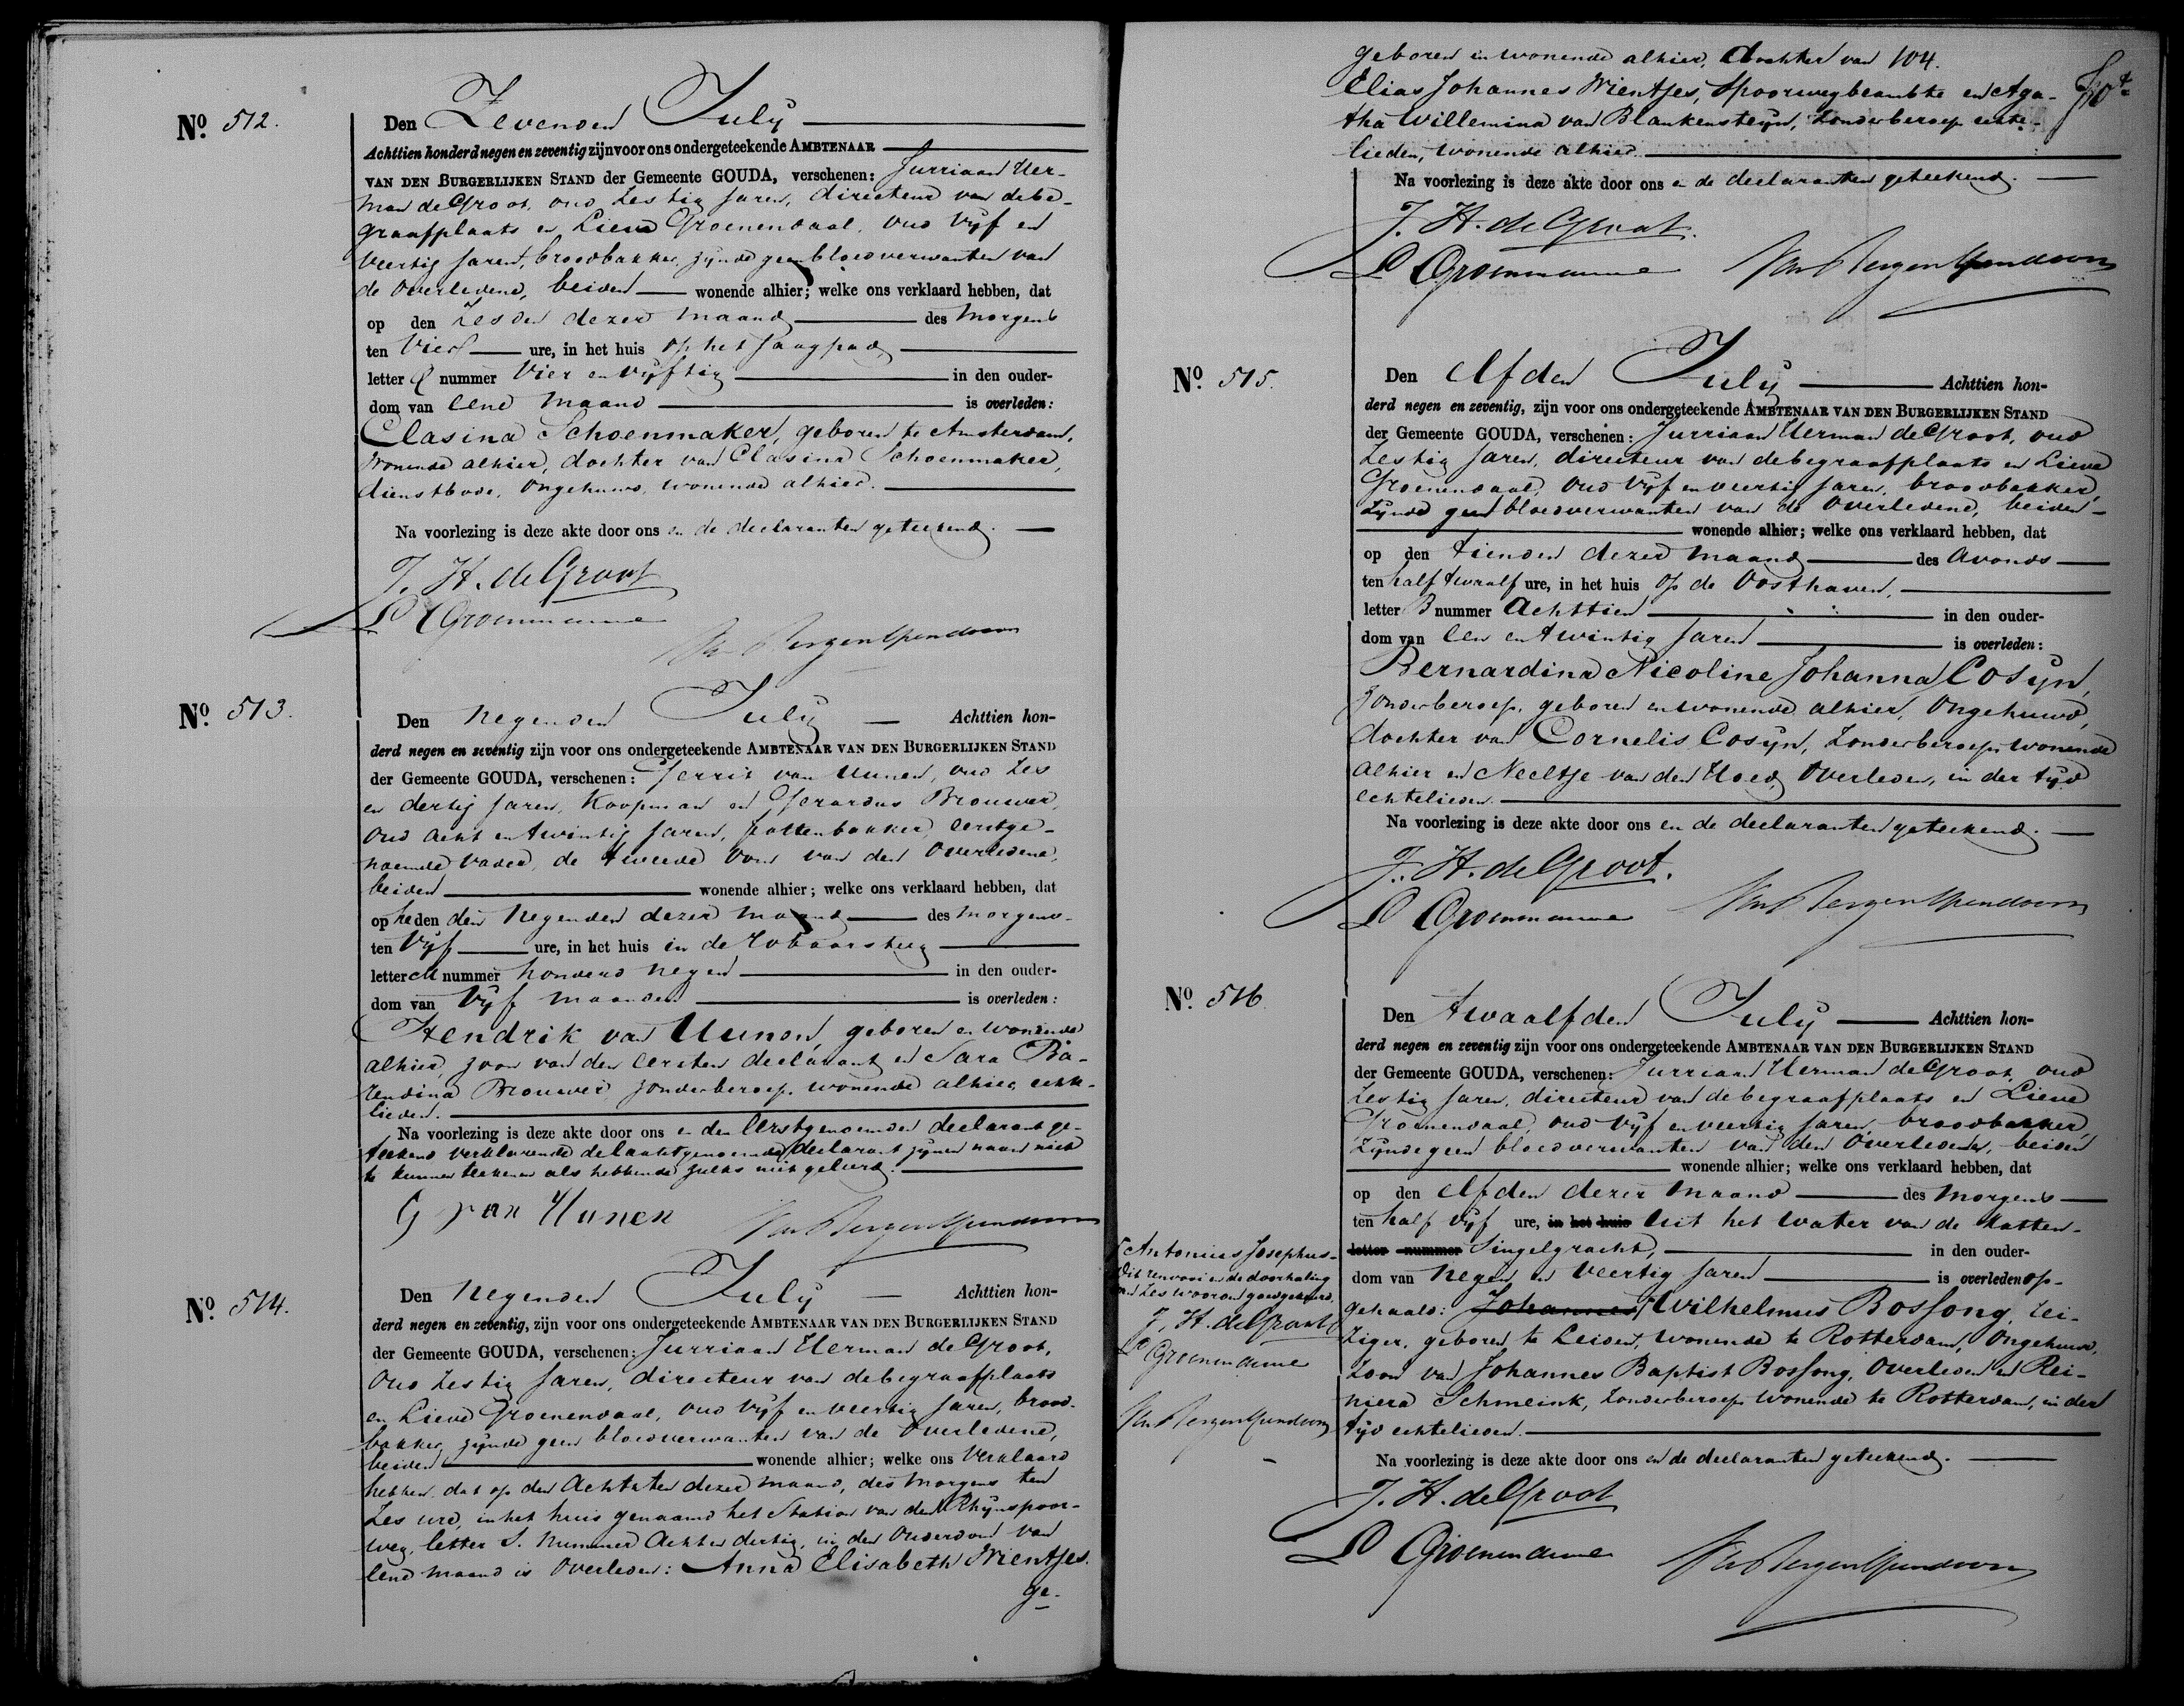 No. 512.
Den Zevenden July
Achttien honderd negen en zeventig zijn voor ons ondergeteekende AMBTENAAR
VAN DEN BURGERLIJKEN STAND der Gemeente GOUDA, verschenen: Jurriaan Her-
man de Groot, oud Zestig Jaren, directeur van de be-
graafplaats en Lieve Groenendaal, oud Vijf en
Veertig Jaren, broodbakker, zijnde geen bloedverwanten van
de Overledene, beiden wonende alhier; welke ons verklaard hebben, dat
op den Zesden dezer maand des Morgens
ten Vier ure, in het huis op het Jaagpad,
letter Q nummer Vier en Vijftig in den ouder-
dom van eene maand is overleden:
Clasina Schoenmaker, geboren te Amsterdam,
Wonende alhier, dochter van Clasina Schoenmaker,
dienstbode, Ongehuwd, wonende alhier.
Na voorlezing is deze akte door ons en de declaranten geteekend.
J. H. de Groot
L Groenendaal
Van Bergen IJzendoorn
No. 513.
Den Negenden July Achttien hon-
derd negen en zeventig zijn voor ons ondergeteekende AMBTENAAR VAN DEN BURGERLIJKEN STAND
der Gemeente GOUDA, verschenen: Gerrit van Unen, oud Zes
en dertig Jaren, Koopman en Gerardus Brouwer,
oud acht en twintig Jaren, pottenbakker, eerstge-
noemde vader, de tweede Oom van den Overledene,
beiden wonende alhier; welke ons verklaard hebben, dat
op heden den Negenden dezer maand des morgens
ten Vijf ure, in het huis in de Robaarsteeg
letter M nummer honderd negen in den ouder-
dom van Vijf maanden is overleden:
Hendrik van Unen, geboren en wonende
alhier, zoon van den eersten declarant en Sara
Brouwer, zonder beroep, wonende alhier, echte-
lieden.
Na voorlezing is deze akte door ons en den Eerstgenoemden declarant ge-
teekend verklarende de laatstgenoemde declarant zijnen naam niet
te kunnen teekenen als hebbende zulks niet geleerd.
G van Unen
Van Bergen IJzendoorn
No. 514.
Den Negenden July Achttien hon-
derd negen en zeventig, zijn voor ons ondergeteekende AMBTENAAR VAN DEN BURGERLIJKEN STAND
der Gemeente GOUDA, verschenen: Jurriaan Herman de Groot,
Oud Zestig Jaren, directeur van de begraafplaats
en Lieve Groenendaal, oud Vijf en veertig Jaren, brood-
bakker, zijnde geen bloedverwanten van de Overledene,
beiden wonende alhier; welke ons Verklaard
hebben, dat op den Achtsten dezer maand, des morgens ten
Zes ure, in het huis genaamd het Station van den Rhijnspoor-
weg, letter S. Nummer Acht en dertig, in den Ouderdom van
eene maand is Overleden: Anna Elisabeth Wientjes.
ge-
geboren en wonende alhier, dochter van 104.
Elias Johannes Wientjes, Spoorwegbeambte en Aga-
tha Willemina van Blankensteijn, Zonder beroep echte-
lieden, wonende alhier.
Na voorlezing is deze akte door ons en de declaranten geteekend.
J. H. de Groot.
L Groenendaal
Van Bergen IJzendoorn
No. 515.
Den Elfden July Achttien hon-
derd negen en zeventig, zijn voor ons ondergeteekende AMBTENAAR VAN DEN BURGERLIJKEN STAND
der Gemeente GOUDA, verschenen: Jurriaan Herman de Groot, oud
Zestig Jaren, directeur van de begraafplaats en Lieve
Groenendaal, oud Vijf en veertig Jaren, broodbakker,
Zijnde geen bloedverwanten van de Overledene, beiden
wonende alhier; welke ons verklaard hebben, dat
op den tienden dezer maand des Avonds
ten half twaalf ure, in het huis op de Oosthaven,
letter B nummer Achttien in den ouder-
dom van een en twintig Jaren is overleden:
Bernardina Nicoline Johanna Cosijn,
Zonder beroep, geboren en wonende alhier, Ongehuwd,
dochter van Cornelis Cosijn, Zonder beroep wonende
Alhier en Neeltje van den Hoed, Overleden, in der tijd
echtelieden.
Na voorlezing is deze akte door ons en de declaranten geteekend.
J. H. de Groot.
L Groenendaal
Van Bergen IJzendoorn
No. 516.
Den Twaalfden July Achttien hon-
derd negen en zeventig zijn voor ons ondergeteekende AMBTENAAR VAN DEN BURGERLIJKEN STAND
der Gemeente GOUDA, verschenen: Jurriaan Herman de Groot, oud
Zestig Jaren, directeur van de begraafplaats en Lieve
Groenendaal, oud Vijf en veertig Jaren, broodbakker,
Zijnde geen bloedverwanten van den Overledene, beiden
wonende alhier; welke ons verklaard hebben, dat
op den elfden dezer maand des morgens
ten half Vijf ure, in het huis uit het Water van de Katten-
letter nummer Singelgracht, in den ouder-
dom van Negen en Veertig Jaren is overleden op-
gehaald: Johannes Wilhelmus Bossong, Rei-
ziger, geboren te Leiden, wonende te Rotterdam, Ongehuwd,
Zoon van Johannes Baptist Bossong, Overleden en Rei-
niera Schmeink, Zonder beroep wonende te Rotterdam, in der
tijd echtelieden.
Na voorlezing is deze akte door ons en de declaranten geteekend.
J. H. de Groot
L Groenendaal
Van Bergen IJzendoorn
Antonius Josephus
Dit renvooi en de doorhaling
van Zes woorden goedgekeurd.
J. H. de Groot
L Groenendaal
Van Bergen IJzendoorn